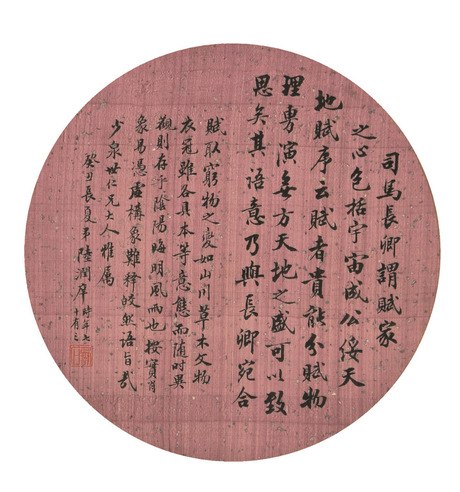 司馬長卿謂賦家
之心包括宇宙成公綏天
地賦序云賦者貴能分賦物
理旉演無方天地之盛可以致
思矣其語意乃與長卿宛合
賦取窮物之變如山川草木文物
衣冠雖各具本等意態而随時異
觀則存乎陰陽晦明風雨也按實肖
象易憑虛構象難釋皎然語旨哉
少泉世仁兄大人雅属
癸丑長夏弟陸潤庠
時年七
十有三